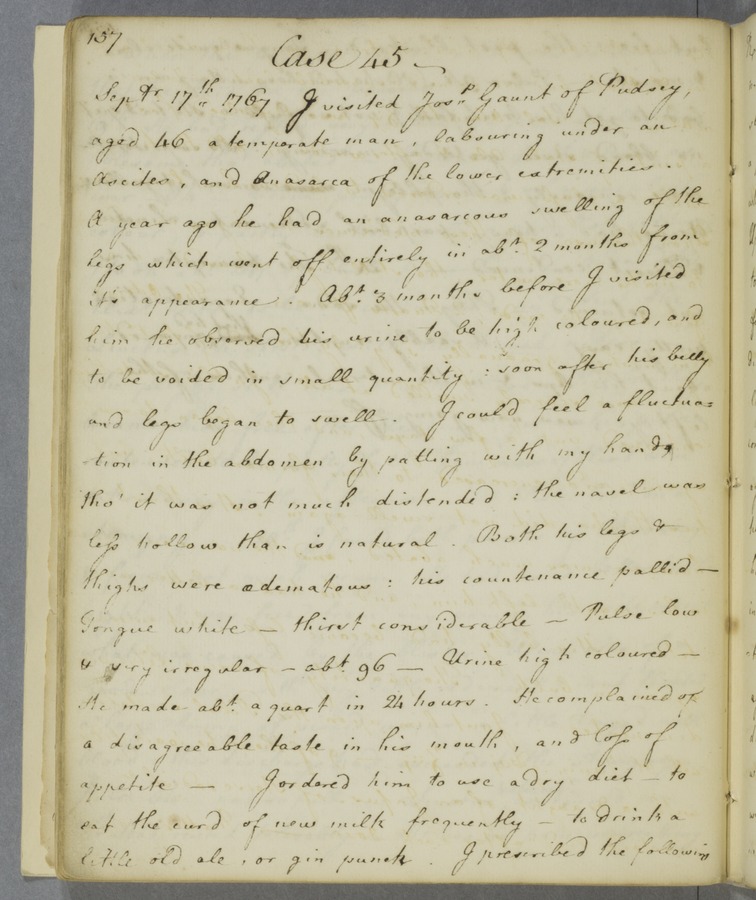 157
Case 45
Septr. 17th 1767 I visited Josp. Gaunt of Pudsey,
aged 46 a temperate man, labouring under an
Ascites, and Anasarca of the lower extremities.
A year ago he had an anasarcous swelling of the
legs which went off entirely in abt. 2 months from
it's appearance. Abt. 3 months before I visited
him he observed his urine to be high coloured, and
to be voided in small quantity : soon after his belly
and legs began to swell. I could feel a fluctua=
-tion in the abdomen by patting with my hand,
tho' it was not much distended : the navel was
less hollow than is natural. Both his legs &
thighs were œdematous : his countenance pallid —
Tongue white — thirst considerable — Pulse low
& very irregular — abt. 96 — Urine high coloured —
He made abt. a quart in 24 hours. He complained of
a disagreeable taste in his mouth, and loss of
appetite — I ordered him to use a dry diet — to
eat the curd of new milk frequently — to drink a
little old ale, or gin punch. I prescribed the following